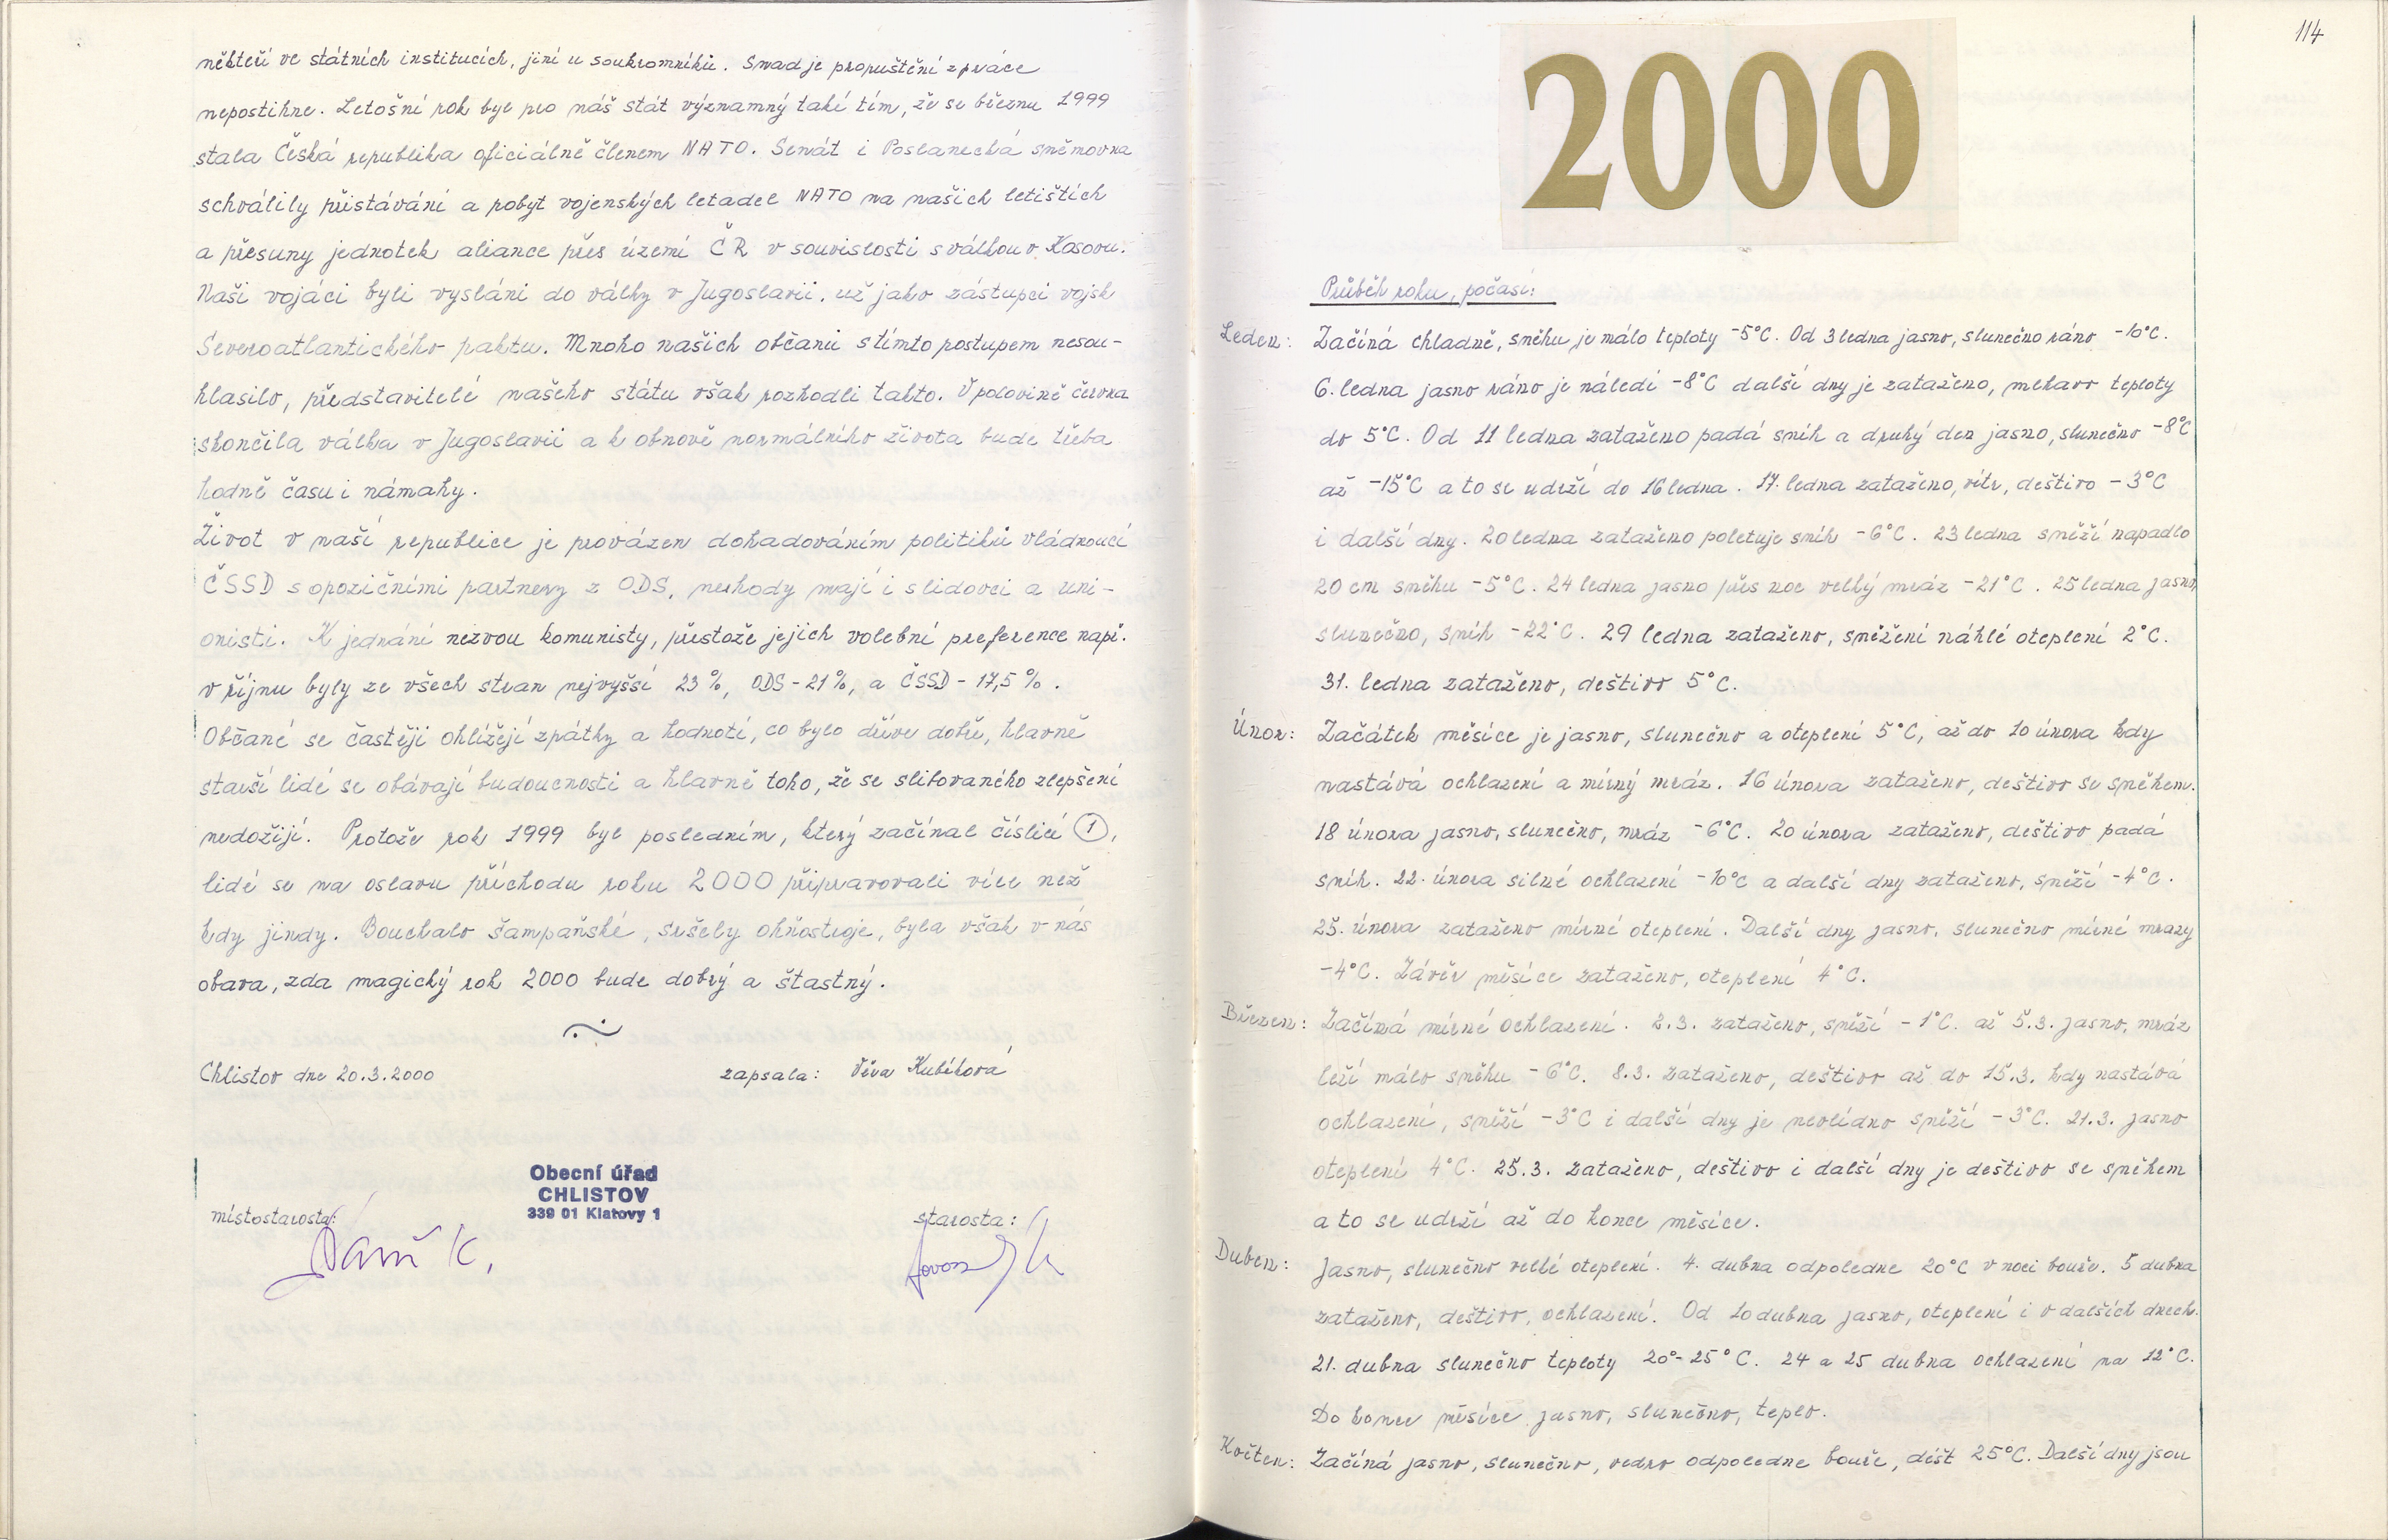 někteří ve státních institucích, jiní u soukromníků. Snad je propuštění z práce
nepostihne. Letošní rok byl pro náš stát významný také tím, že se březnu 1999
stala Česká republika oficiálně členem NATO. Senát i Poslanecká sněmovna
schválily přistávání a pobyt vojenských letadel NATO na našich letištích
a přesuny jednotek aliance přes území ČR v souvislosti s válkou v Kosovu.
Naši vojáci byli vysláni do války v Jugoslavii, už jako zástupci vojsk
Severoatlantického paktu. Mnoho našich občanů s tímto postupem nesou-
hlasilo, představitelé našeho státu však rozhodli takto. V polovině června
skončila válka v Jugoslavii a k obnově normálního života bude třeba
hodně času i námahy.
Život v naší republice je provázen dohadováním politiků vládnoucí
ČSSD s opozičními partnery z ODS, neshody mají i s lidovci a uni-
onisti. K jednání nezvou komunisty, přestože jejich volební preference např.
v říjnu byly ze všech stran nejvyšší 23 %, ODS - 21 %, a ČSSD - 17,5 %.
Občané se častěji ohlížejí zpátky a hodnotí, co bylo dříve dobře, hlavně
starší lidé se obávají budoucnosti a hlavně toho, že se slibovaného zlepšení
nedožijí. Protože rok 1999 byl posledním, který začínal číslicí 1,
lidé se na oslavu příchodu roku 2000 připravovali více než
kdy jindy. Bouchalo šampaňské, sršely ohňostroje, byla však v nás
obava, zda magický rok 2000 bude dobrý a štastný.
Chlistov dne 20.3.2000 zapsala: Věra Kubíková
Obecní úřad
CHLISTOV
339 01 Klatovy 1
místostarosta: starosta:
114
2000
Průběh roku, počasí:
Leden: Začíná chladně, sněhu je málo teploty -5°C. Od 3 ledna jasno, slunečno ráno -10°C.
6. ledna jasno ráno je náledí -8°C další dny je zataženo, mokavo teploty
do 5°C. Od 11 ledna zataženo padá sníh a druhý den jasno, slunečno -8°C
až -15°C a to se udrží do 16 ledna. 17. ledna zataženo, vítr, deštivo - 3°C
i další dny. 20 ledna zataženo poletuje sníh -6°C. 23 ledna sněží napadlo
20 cm sněhu -5°C. 24 ledna jasno přes noc velký mráz -21°C. 25 ledna jasno,
slunečno, sníh -22°C. 29 ledna zataženo, sněžení náhlé oteplení 2°C.
31. ledna zataženo, deštivo 5°C.
Únor: Začátek měsíce je jasno, slunečno a oteplení 5°C, až do 10 února kdy
nastává ochlazení a mírný mráz. 16 února zataženo, deštivo se sněhem.
18 února jasno, slunečno, mráz -6°C. 20 února zataženo, deštivo padá
sníh. 22. února silné ochlazení -10°C a další dny zataženo, sněží -4°C.
25. února zataženo mírné oteplení. Další dny jasno, slunečno mírné mrazy
-4°C. Závěr měsíce zataženo, oteplení 4°C.
Březen: Začíná mírné ochlazení. 2.3. zataženo, sněží - 1°C. až 5.3. jasno, mráz
leží málo sněhu - 6°C. 8.3. zataženo, deštivo až do 15.3. kdy nastává
ochlazení, sněží -3°C i další dny je nevlídno sněží -3°C. 21.3. jasno
oteplení 4°C. 25.3. zataženo, deštivo i další dny je deštivo se sněhem
a to se udrží až do konce měsíce.
Duben: Jasno, slunečno velké oteplení. 4. dubna odpoledne 20°C v noci bouře. 5 dubna
zataženo, deštivo, ochlazení. Od 10 dubna jasno, oteplení i v dalších dnech.
21. dubna slunečno teploty 20°-25°C. 24 a 25 dubna ochlazení na 12°C.
Do konce měsíce jasno, slunečno, teplo.
Květen: Začíná jasno, slunečno, vedro odpoledne bouře, déšt 25°C. Další dny jsou